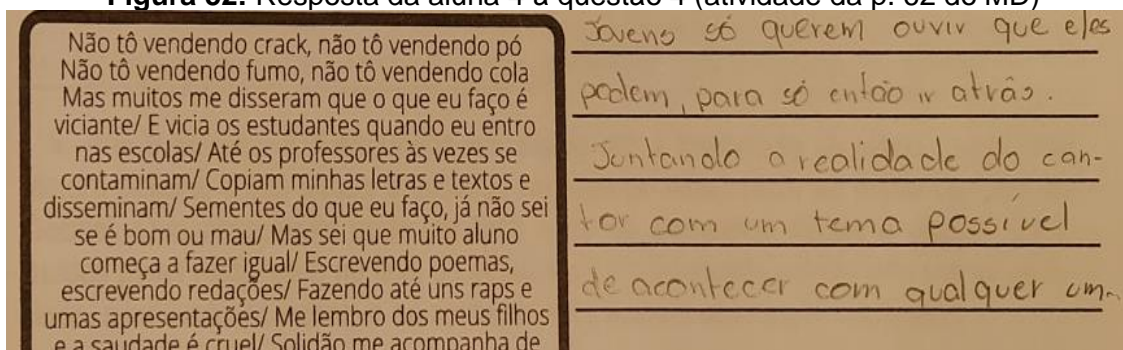 Figura 32: Resposta da aluna 4 à questão 4 (atividade da p. 62 do MD)
Não tô vendendo crack, não tô vendendo pó
Não tô vendendo fumo, não tô vendendo cola
Mas muitos me disseram que o que eu faço é
viciante/ E vicia os estudantes quando eu entro
nas escolas/ Até os professores às vezes se
contaminam/ Copiam minhas letras e textos e
disseminam/ Sementes do que eu faço, já não sei
se é bom ou mau/ Mas sei que muito aluno
começa a fazer igual/ Escrevendo poemas,
escrevendo redações/ Fazendo até uns raps e
umas apresentações/ Me lembro dos meus filhos
e a saudade é cruel/ Solidão me acompanha de
Jovens só querem ouvir que eles
podem, para só então ir atrás.
Juntando a realidade do can-
tor com um tema possível
de acontecer com qualquer um.